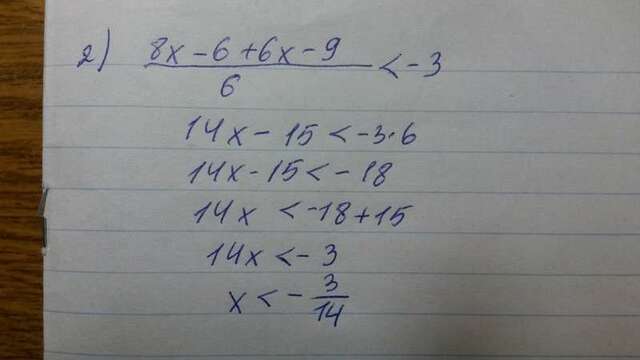 2) (8x - 6 + 6x - 9)/6 < -3
14x - 15 < -3·6
14x - 15 < -18
14x < -18 + 15
14x < -3
x < -3/14